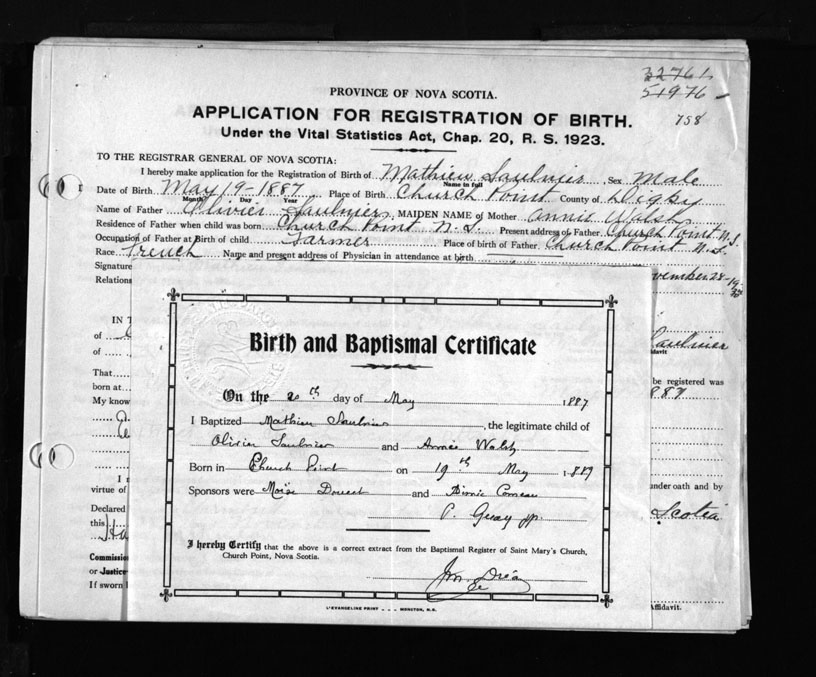 32761
51976 –
758
PROVINCE OF NOVA SCOTIA.
APPLICATION FOR REGISTRATION OF BIRTH.
Under the Vital Statistics Act, Chap. 20, R. S. 1923.
TO THE REGISTRAR GENERAL OF NOVA SCOTIA:
I hereby make application for the Registration of Birth of Mathieu Saulnier, Sex Male
Name in full
Date of Birth May 19-1887 Place of Birth Church Point County of Digby
Month Day Year
Name of Father Olivier Saulnier MAIDEN NAME of Mother Annie Walsh
Residence of Father when child was born Church Point N.S. Present address of Father Church Point N.S.
Occupation of Father at Birth of child Farmer Place of birth of Father Church Point N.S.
Race French Name and present address of Physician in attendance at birth
Signature vember 28-19
Relations
IN T
of
of Saulnier
davit
That
born at be registered was
My know 887
I
virtue of under oath and by
Declared Scotia
this
Commissio
or Justice
If sworn Affidavit.
Birth and Baptismal Certificate
On the 20th day of May 1887
I Baptized Mathieu Saulnier, the legitimate child of
Olivier Saulnier and Annie Walsh
Born in Church Point on 19th May 1889
Sponsors were Moïse Doucet and Comeau
P.
I hereby Certify that the above is a correct extract from the Baptismal Register of Saint Mary's Church,
Church Point, Nova Scotia.
L'EVANGELINE PRINT - - - MONCTON, N.B.